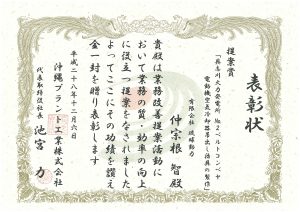 表彰状
提案賞
「具志川火力発電所 №2ベルトコンベヤ
電動機空気冷却器吊出し治具の製作」
有限会社 琉球動力
仲宗根 智殿
貴殿は業務改善提案活動に
おいて業務の質・効率の向上
に役立つ提案をなされました
よってここにその功績を讃え
金一封を贈り表彰します
平成二十八年十二月六日
沖縄プラント工業株式会社
代表取締役社長 池宮 力